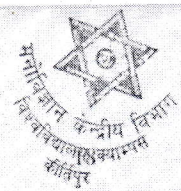 मनोविज्ञान केन्द्रीय विभाग
विश्वविद्यालय क्याम्पस
कीर्तिपुर